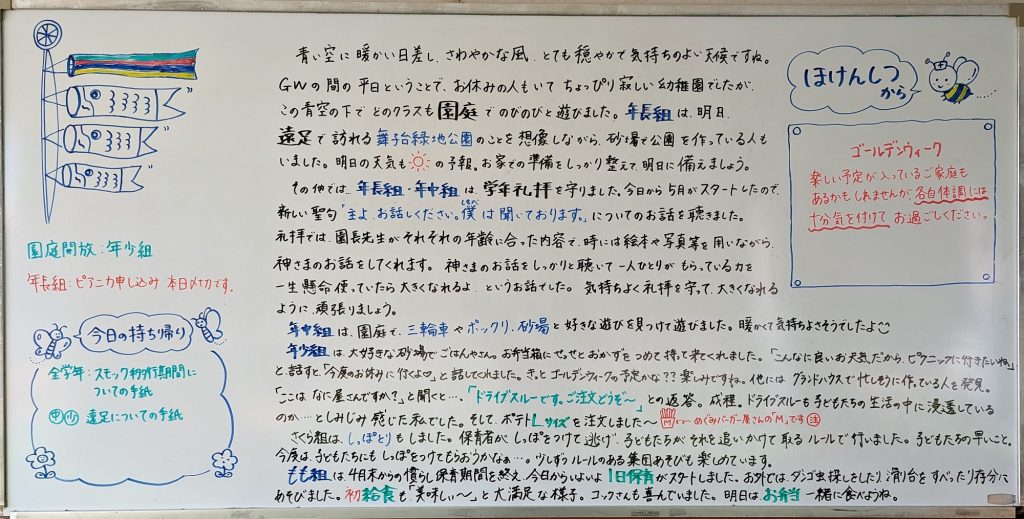 青い空に暖かい日差し、さわやかな風、とても穏やかで気持ちのよい天候ですね。
GWの間の平日ということで、お休みの人もいて ちょっぴり寂しい幼稚園でしたが、
この青空の下で どのクラスも園庭でのびのびと遊びました。年長組は、明日、
遠足で訪れる舞子台緑地公園のことを想像しながら、砂場で公園を作っている人も
いました。明日の天気も☀の予報。お家での準備をしっかり整えて、明日に備えましょう。
その他では、年長組・年中組は、学年礼拝を守りました。今日から5月がスタートしたので、
新しい聖句「主よ、お話しください。僕しもべは聞いております。」についてのお話を聴きました。
礼拝では、園長先生がそれぞれの年齢に合った内容で、時には絵本や写真等を用いながら、
神さまのお話をしてくれます。神さまのお話をしっかりと聴いて一人ひとりがもらっている力を
一生懸命使っていたら大きくなれるよ、というお話でした。気持ちよく礼拝を守って、大きくなれる
ように頑張りましょう。
年中組は、園庭で、三輪車やポックリ、砂場と好きな遊びを見つけて遊びました。暖かくて気持ちよさそうでしたよ☺
年少組は、大好きな砂場でごはんやさん。お弁当箱にせっせとおかずをつめて持って来てくれました。「こんなに良いお天気だから、ピクニックに行きたいね」
と話すと、「今度のお休みに行くよ♡」と話してくれました。きっとゴールデンウィークの予定かな??楽しみですね。他には グランドハウスで忙しそうに作っている人を発見。
「ここは なに屋さんですか?」と聞くと…、「ドライブスルーです。ご注文どうぞ〜」との返答。成程、ドライブスルーも子どもたちの生活の中に浸透している
のか…としみじみ感じた私でした。そして、ポテトLサイズを注文しました〜 M めぐみバーガー屋さんの「M」です 注
さくら組は、しっぽとりもしました。保育者が、しっぽをつけて逃げ、子どもたちがそれを追いかけて取るルールで行いました。子どもたちの早いこと。
今度は、子どもたちにもしっぽをつけてもらおうかなぁ…。少しずつルールのある集団あそびも楽しめています。
もも組は、4月末からの慣らし保育期間を終え、今日からいよいよ1日保育がスタートしました。お外では、ダンゴ虫探しをしたり、滑り台をすべったり存分に
あそびました。初給食も「美味しい〜」と大満足な様子。コックさんも喜んでいました。明日はお弁当 一緒に食べようね。
園庭開放:年少組
年長組:ピアニカ申し込み 本日〆切です。
今日の持ち帰り
全学年:スモック移行期間に
ついての手紙
中 少 遠足についての手紙
ほけんしつ
から
ゴールデンウィーク
楽しい予定が入っているご家庭も
あるかもしれませんが、各自体調には
十分気を付けて お過ごしください。